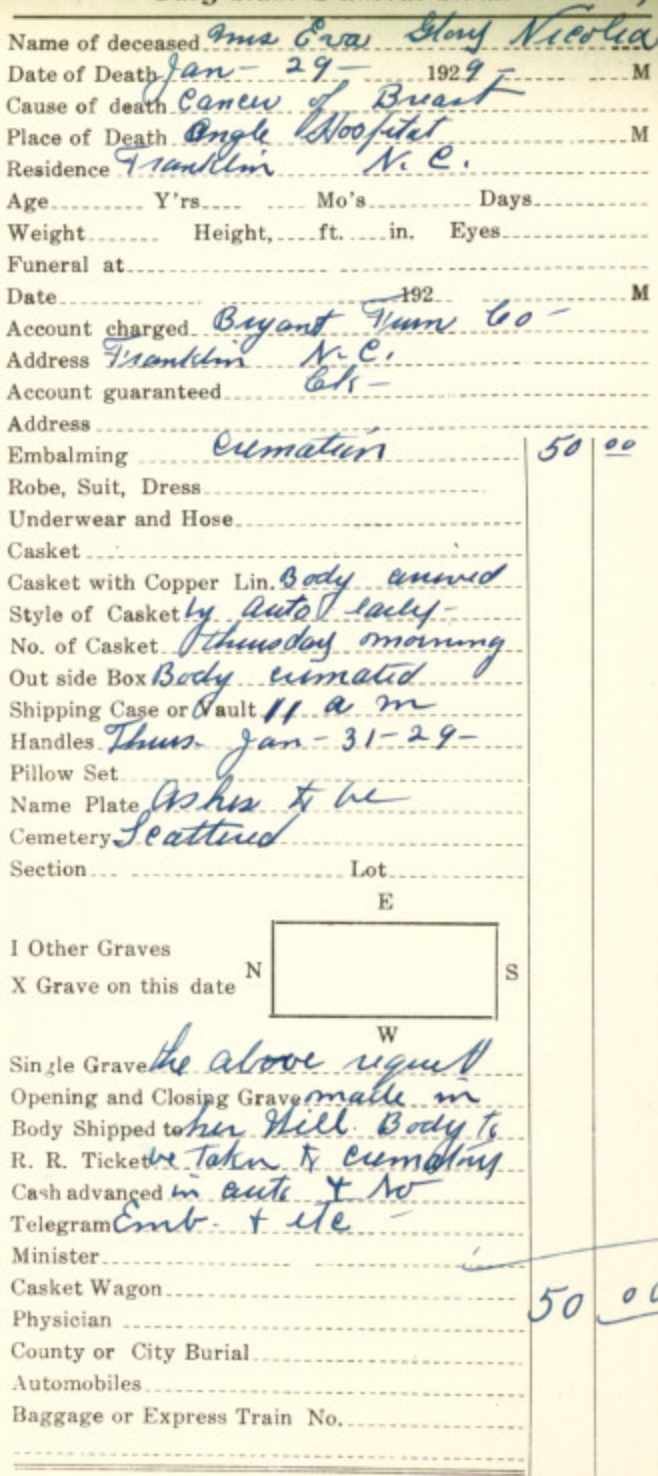 Name of deceased Mrs Eva Glory Nicolia
Date of Death Jan - 29 - 1929 - M
Cause of death Cancer of Breast
Place of Death Angle Hospital M
Residence Franklin N. C.
Age Y'rs Mo's Days
Weight Height, ft. in. Eyes
Funeral at
Date 192 M
Account charged Bryant Furn Co -
Address Franklin N. C.
Account guaranteed Ck -
Address
Embalming Cremation 50 00
Robe, Suit, Dress
Underwear and Hose
Casket
Casket with Copper Lin. Body arrived
Style of Casket by auto early -
No. of Casket Thursday morning
Out side Box Body cremated
Shipping Case or Vault 11 a m
Handles Thurs. Jan - 31 - 29 -
Pillow Set
Name Plate Ashes to be
Cemetery Scattered
Section Lot
E
I Other Graves
N S
X Grave on this date
W
Single Grave the above request
Opening and Closing Grave made in
Body Shipped to her Will. Body to
R. R. Ticket be taken to crematory
Cash advanced in auto & No
Telegram Emb. & etc -
Minister
Casket Wagon 50 00
Physician
County or City Burial
Automobiles
Baggage or Express Train No.